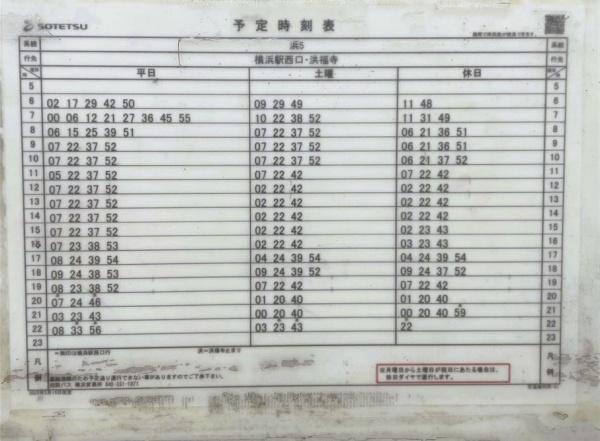 SOTETSU 予定時刻表
系統 浜5
行先 横浜駅西口・洪福寺
平日 土曜 休日
5 5
6 02 17 29 42 50 09 29 49 11 48 6
7 00 06 12 21 27 36 45 55 10 22 38 52 11 31 49 7
8 06 15 25 39 51 07 22 37 52 06 21 36 51 8
9 07 22 37 52 07 22 37 52 06 21 36 51 9
10 07 22 37 52 07 22 37 52 06 21 37 52 10
11 05 22 37 52 07 22 42 07 22 42 11
12 07 22 37 52 02 22 42 02 22 42 12
13 07 22 37 52 02 22 42 02 22 42 13
14 07 22 37 52 02 22 42 02 22 42 14
15 07 22 37 52 02 22 42 02 23 43 15
16 07 23 38 53 02 22 42 03 23 43 16
17 08 24 39 54 04 24 39 54 04 24 39 54 17
18 09 24 38 53 09 24 39 52 09 24 37 52 18
19 08 23 38 52 07 22 42 07 22 42 19
20 07 24 46 01 20 40 01 20 40 20
21 03 23 43 00 20 40 00 20 40 59 21
22 08 33 56 03 23 43 22 22
23 23
凡例
無印は横浜駅西口行
※月曜日から土曜日が祝日にあたる場合は、
休日ダイヤで運行します。